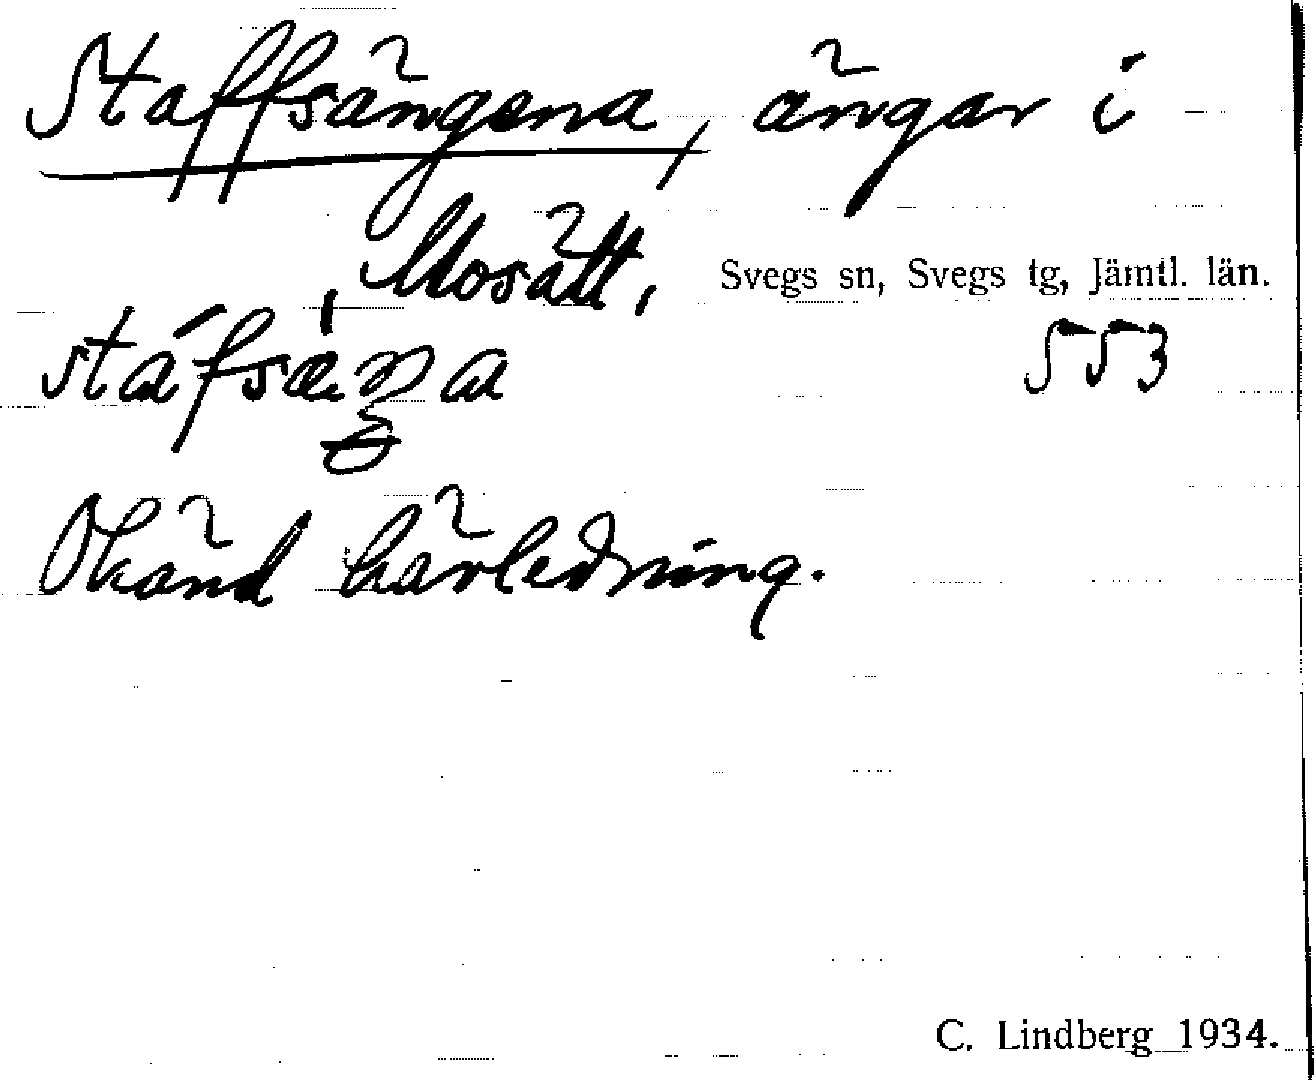 Staffsängena, ängar i
Mosätt, Svegs sn, Svegs tg, Jämtl. län.
stáfsæŋa 553
Okänd härledning.
C. Lindberg 1934.